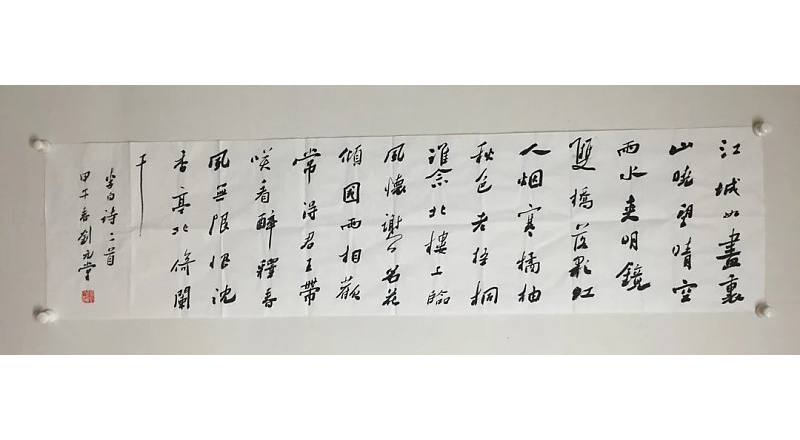 江城如畫裏
山曉望晴空
兩水夾明鏡
雙橋落彩虹
人烟寒橘柚
秋色老梧桐
誰念北樓上臨
風懷謝公名花
傾國兩相歡
常得君王帶
咲看解釋春
風無限恨沈
香亭北倚闌
干
李白詩二首
甲午春劉元堂